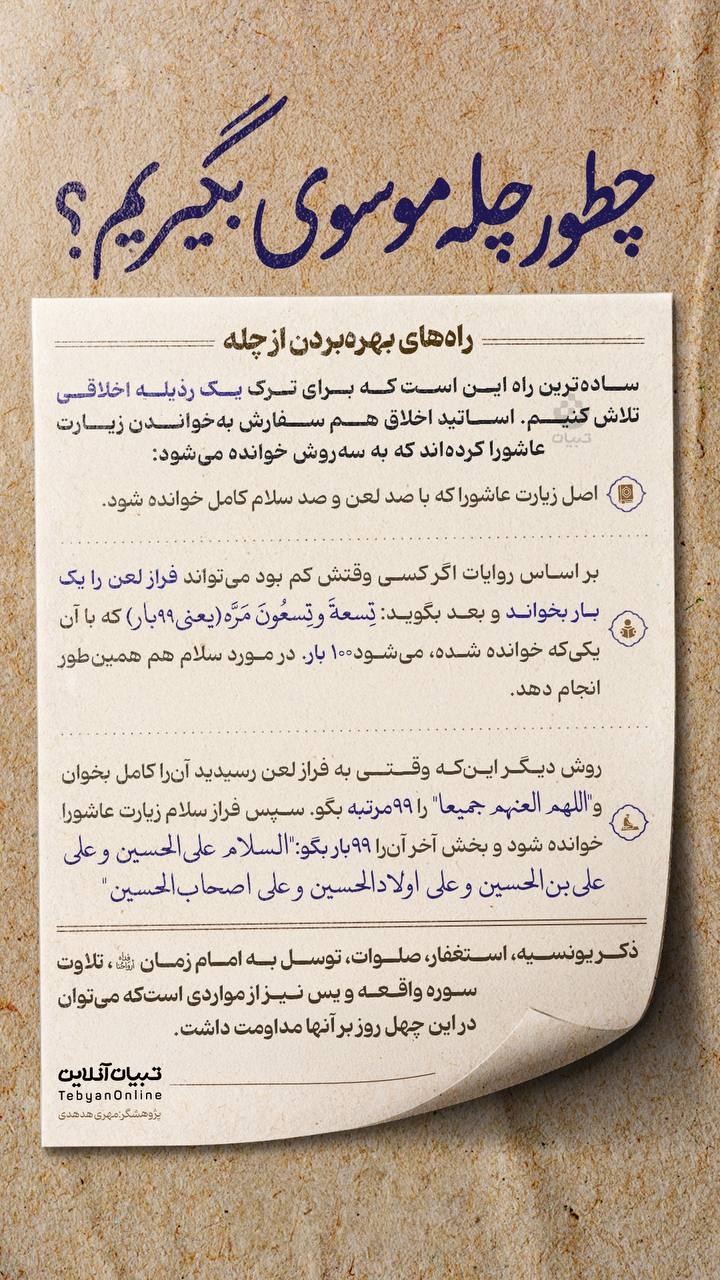 چطور چله موسوی بگیریم؟
راه‌های بهره‌بردن از چله
ساده‌ترین راه این است که برای ترک یک رذیله اخلاقی
تلاش کنیم. اساتید اخلاق هم سفارش به‌خواندن زیارت
عاشورا کرده‌اند که به سه‌روش خوانده می‌شود:
تبیان
اصل زیارت عاشورا که با صد لعن و صد سلام کامل خوانده شود.
بر اساس روایات اگر کسی وقتش کم بود می‌تواند فراز لعن را یک
بار بخواند و بعد بگوید: تِسعةَ وتِسعُونَ مَرَّه (یعنی ۹۹بار) که با آن
یکی‌که خوانده شده، می‌شود۱۰۰ بار. در مورد سلام هم همین‌طور
انجام دهد.
روش دیگر این‌که وقتی به فراز لعن رسیدید آن‌را کامل بخوان
و"اللهم العنهم جمیعا" را ۹۹مرتبه بگو. سپس فراز سلام زیارت عاشورا
خوانده شود و بخش آخر آن‌را ۹۹بار بگو:"السلام علی الحسین وعلی
علی بن الحسین وعلی اولاد الحسین وعلی اصحاب الحسین"
ذکر یونسیه، استغفار، صلوات، توسل به امام زمان ، تلاوت
سوره واقعه و یس نیز از مواردی است‌که می‌توان
در این چهل روز بر آنها مداومت داشت.
تبیان آنلاین
TebyanOnline
پژوهشگر:مهری هدهدی